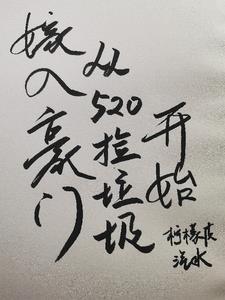 嫁入豪门
从520捡垃圾
开始
柠檬皮
汽水